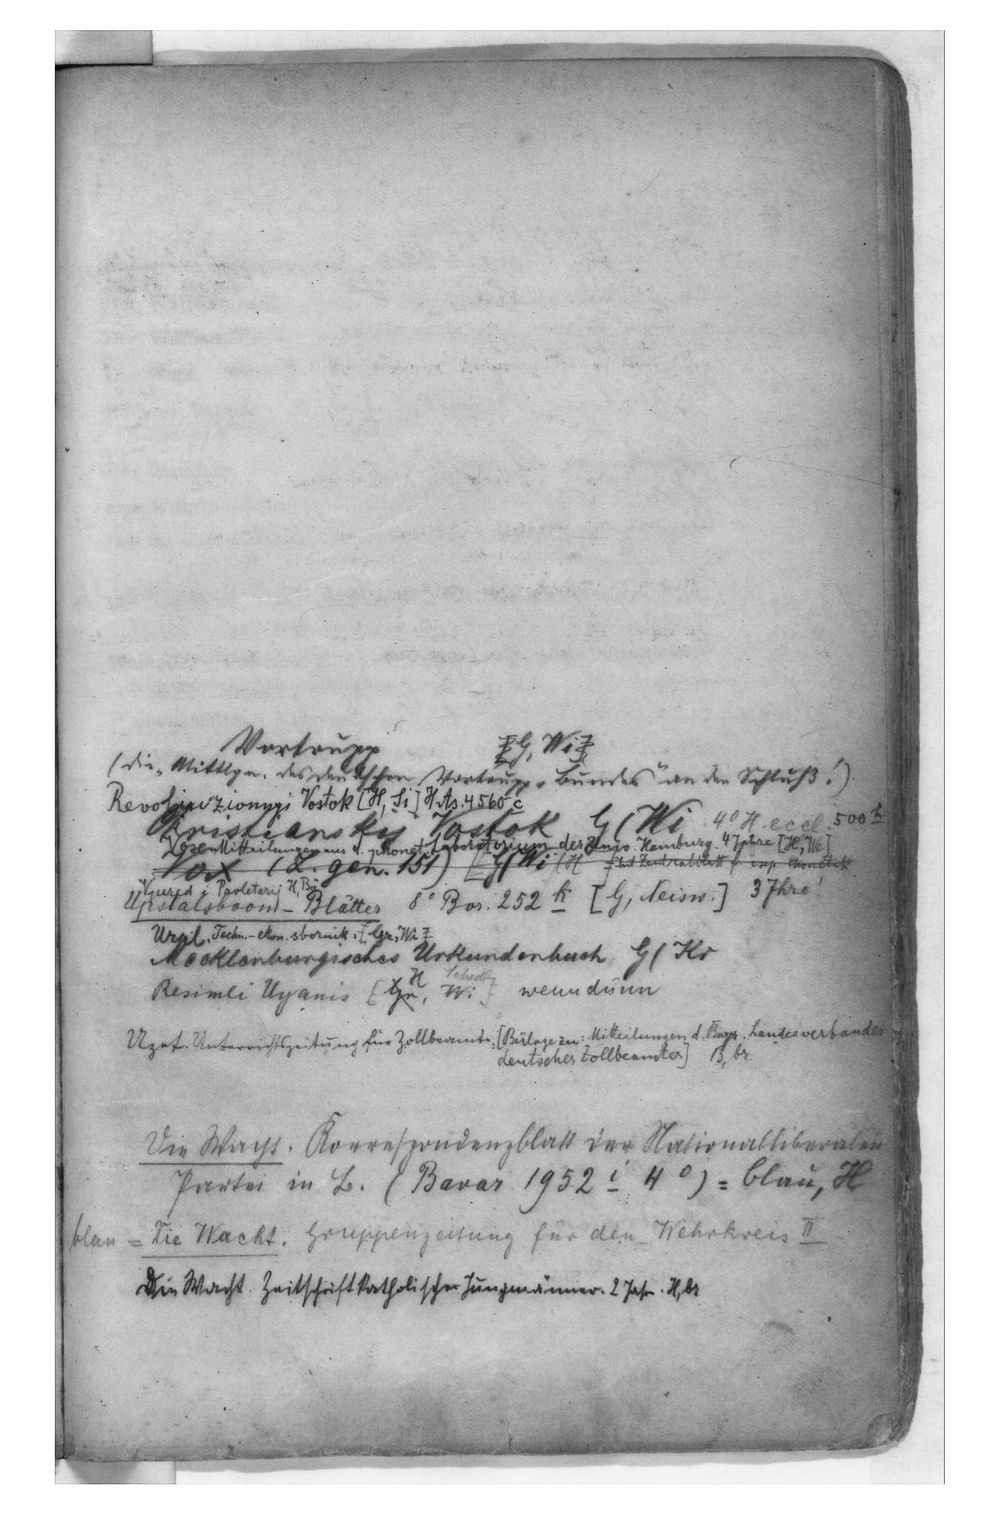 Vortrupp [G, Wi]
(die „Mittlgn. des deutschen Vortrupp-Bundes" an den Schluß!)
Revoljuzionnyi Vostok [H, Si] H.As. 4560 c
Kristiansky Vostok G/Wi 4° H.eccl. 500 k
Vox Mitteilungen aus d. phonet. Laboratorium der Univ. Hamburg. 4 Jahre [H, We]
Vox (L. gen. 151) [G/Wi/H
Vpered i Proletarij H, Bü
Upstalsboom-Blätter 8° Bor. 252 k [G, Neisw.] 3 Jhre!
Ural. Techn.-ekon. sbornik. [Gr, Wi]
Mecklenburgisches Urkundenbuch G/Kr
Resimli Uyanis [Gr, H Wi] Schedl wenn dünn
Uzet. Unterrichtszeitung für Zollbeamte. [Beilage zu: Mitteilungen d. Bayr. Landesverbandes
deutscher Zollbeamter] B, br.
Die Wacht. Korrespondenzblatt der Nationalliberalen
Partei in B. (Bavar. 1952 i 4°) = blau, H
blau = Die Wacht. Gruppenzeitung für den Wehrkreis III
Die Wacht. Zeitschrift katholischer Jungmänner. 2 Jahr. H, br